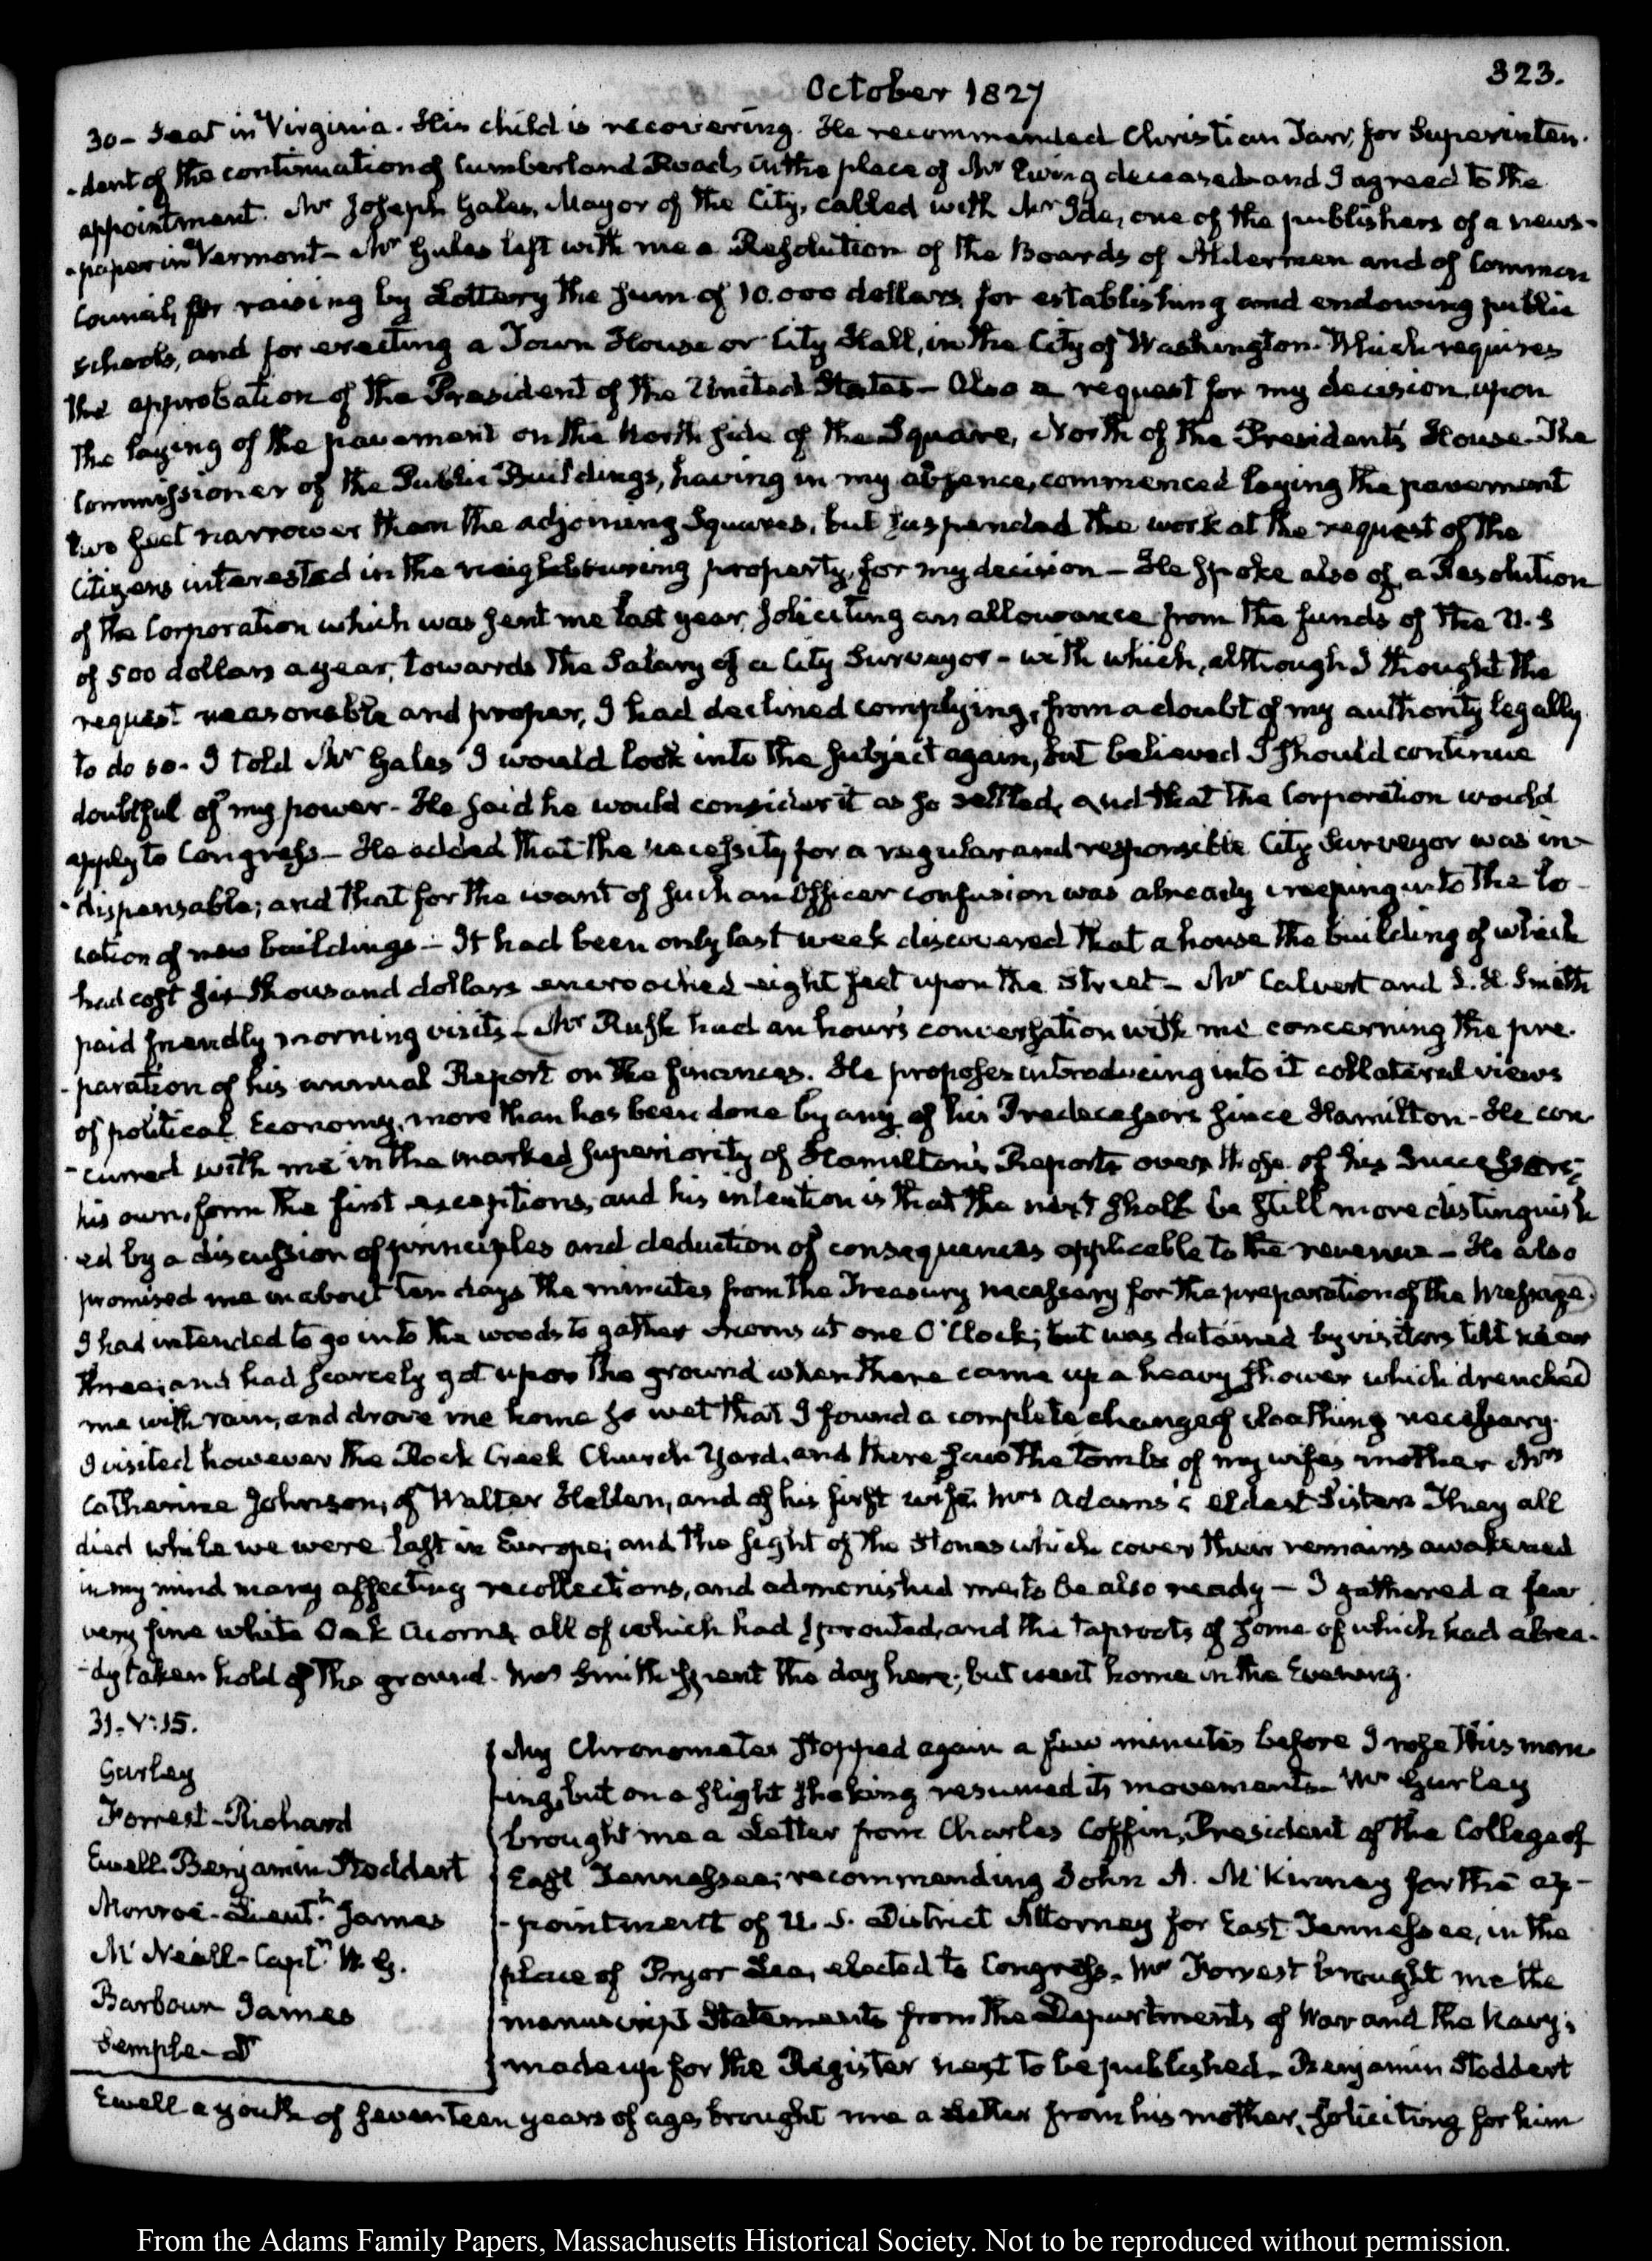 323.
October 1827
30 - Seat in Virginia. His child is recovering. He recommended Christian Tarr, for Superinten-
-dent of the continuation of Cumberland Road, in the place of Mr Ewing deceased and I agreed to the
appointment. Mr Joseph Gales, Mayor of the City, called with Mr Ide, one of the publishers of a news-
-paper in Vermont - Mr Gales left with me a Resolution of the Boards of Aldermen and of Common
Council, for raising by Lottery the sum of 10.000 dollars, for establishing and endowing public
schools, and for erecting a Town House or City Hall, in the City of Washington. Which requires
the approbation of the President of the United States - Also a request for my decision upon
the laying of the pavement on the North side of the Square, North of the Presidents House. The
Commissioner of the Public Buildings, having in my absence, commenced laying the pavement
two feet narrower than the adjoining Squares, but suspended the work at the request of the
Citizens interested in the neighbouring property, for my decision - He spoke also of a Resolution
of the Corporation which was sent me last year, soliciting an allowance from the funds of the U.S
of 500 dollars a year, towards the Salary of a City Surveyor - with which, although I thought the
request reasonable and proper, I had declined complying, from a doubt of my authority legally
to do so - I told Mr Gales I would look into the subject again, but believed I should continue
doubtful of my power - He said he would consider it as so settled, and that the Corporation would
apply to Congress - He added that the necessity for a regular and responsible City Surveyor was in-
-dispensable; and that for the want of such an Officer confusion was already creeping into the lo-
cation of new buildings - It had been only last week discovered that a house the building of which
had cost six thousand dollars encroached eight feet upon the Street - Mr Calvert and S. H. Smith
paid friendly morning visits - Mr Rush had an hour's conversation with me concerning the pre-
-paration of his annual Report on the finances. He proposes introducing into it collateral views
of political Economy, more than has been done by any of his Predecessors since Hamilton - He con-
-curred with me in the marked superiority of Hamilton's Reports over those of his Successors;
his own, form the first exceptions, and his intention is that the next shall be still more distinguish
-ed by a discussion of principles and deduction of consequences applicable to the revenue - He also
promised me in about ten days the minutes from the Treasury necessary for the preparation of the Message.
I had intended to go into the woods to gather Acorns at one O'Clock; but was detained by visitors till near
three; and had scarcely got upon the ground when there came up a heavy shower which drenched
me with rain, and drove me home so wet that I found a complete change of cloathing necessary.
I visited however the Rock Creek Church Yard, and there saw the tombs of my wife's mother Mrs
Catherine Johnson, of Walter Hellen, and of his first wife Mrs Adams's eldest Sister. They all
died while we were last in Europe; and the sight of the Stones which cover their remains awakened
in my mind many affecting recollections, and admonished me, to be also ready - I gathered a few
very fine white Oak Acorns, all of which had sprouted, and the taproots of some of which had alrea-
-dy taken hold of the ground. Mrs Smith spent the day here; but went home in the Evening.
31. V:15.
Gurley
Forrest - Richard
Ewell. Benjamin Stoddert
Monroe - Lieutt. James
McNeill - Captn. W. G.
Barbour James
Semple -
My Chronometer stopped again a few minutes before I rose this morn-
-ing, but on a slight shaking resumed its movements. Mr Gurley
brought me a Letter from Charles Coffin, President of the College of
East Tennessee; recommending John A. McKinney for the ap-
-pointment of U. S. District Attorney for East Tennessee, in the
place of Pryor Lea, elected to Congress. Mr Forrest brought me the
manuscript Statements from the Departments of War and the Navy;
made up for the Register next to be published. Benjamin Stoddert
Ewell a youth of seventeen years of age, brought me a Letter from his mother, soliciting for him
From the Adams Family Papers, Massachusetts Historical Society. Not to be reproduced without permission.